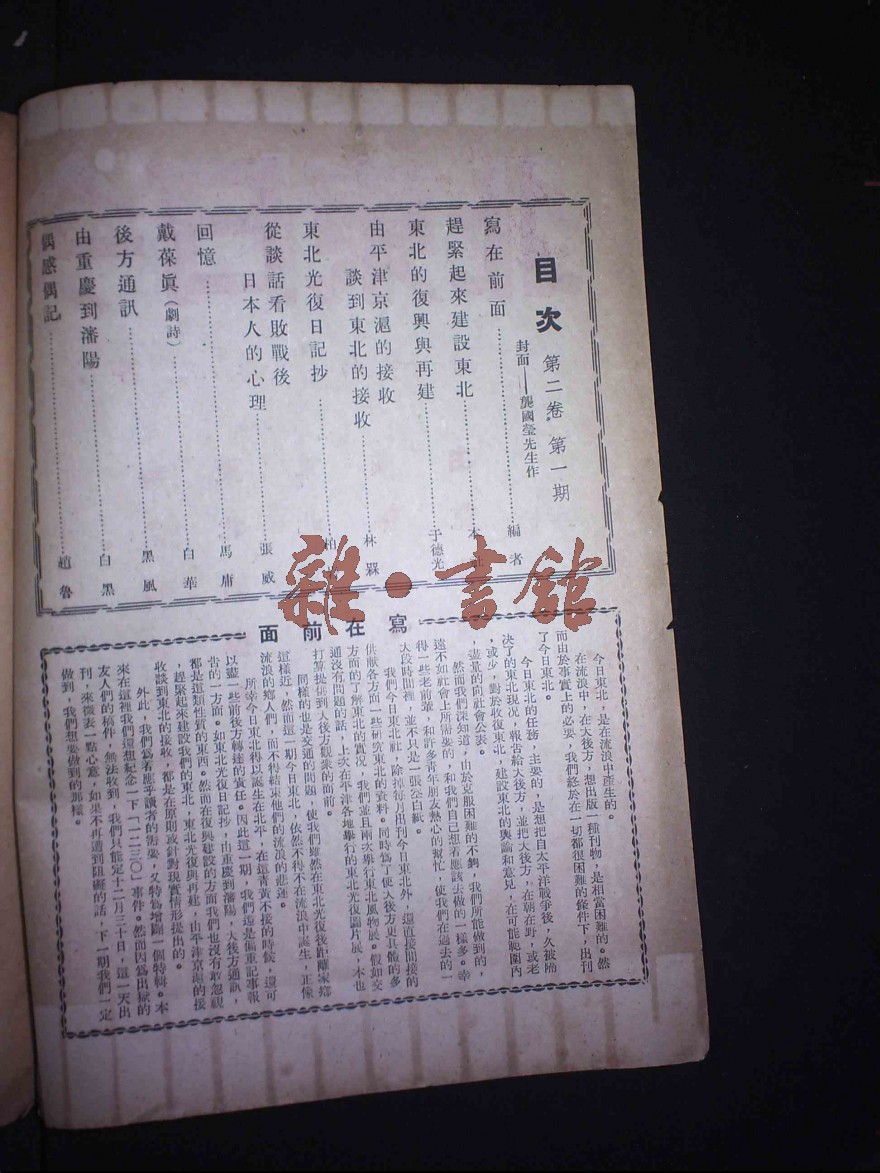 目次 第二卷 第一期
封面——龔國瑩先生作
寫在前面 編者
趕緊起來建設東北 本社
東北的復興與再建 于德光
由平津京滬的接收
談到東北的接收 林霖
東北光復日記抄
從談話看敗戰後
日本人的心理 張威
回憶 馬庸
戴葆眞(劇詩) 白華
後方通訊 黑風
由重慶到瀋陽 白黑
偶感偶記 趙魯
雜·書館
寫在前面
今日東北,是在流浪中產生的。
在流浪中,在大後方,想出版一種刊物,是相當困難的。然
而由於事實上的必要,我們終於在一切都很困難的條件下,出刊
了今日東北。
今日東北的任務,主要的,是想把自太平洋戰爭後,久被隔
決了的東北現況,報吿給大後方,並把大後方,在朝在野,或老
,或少,對於收復東北,建設東北的輿論和意見,在可能範圍內
,盡量的向社會公表。
然而我們深知道,由於克服困難的不夠,我們所能做到的,
遠不如社會上所需要的,和我們自己想着應該去做的一樣多。幸
得一些老前輩,和許多青年朋友熱心的幫忙,使我們在過去的一
大段時間裡,並不只是一張空白紙。
我們今日東北社,除掉每月出刊今日東北外,還直接間接的
供獻各方面一些研究東北的資料。同時爲了使大後方更具體的多
方面的了解東北的實況,我們並且兩次舉行東北風物展。假如交
通沒有問題的話,上次在平津各地舉行的東北光復圖片展,本也
打算提価到大後方觀衆的面前。
同樣的也是交通的問題,使我們雖然在東北光復後距離家鄉
這樣近,然而這一期今日東北,依然不得不在流浪中誕生,正像
流浪的鄉人們,而不得結束他們的流浪的悲運。
所幸今日東北得以誕生在北平,在這青黃不接的時候,還可
以盡一些前後方轉達的責任。因此這一期,我們這是偏重記事報
吿的一方面。如東北光復日記抄,由重慶到瀋陽,大後方通訊,
都是這類性質的東西。然而在復興建設的方面我們也沒有敢忽視
,趕緊起來建設我們的東北,東北光復與再建,由平津京滬的接
收談到東北的接收,都是在原則或針對現實情形提出的。
外此,我們爲着應乎讀者的需要,久特爲增闢一個特輯。本
來在這裡我們還想紀念一下「一二三〇」事件。然而因爲出獄的
友人們的稿件,無法收到,我們只能定十二月三十日,這一天出
刊,來徵表一點心意,如果不再遭到阻礙的話,下一期我們一定
做到,我們想要做到的那樣。